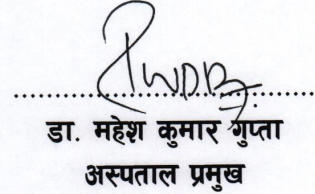 डा. महेश कुमार गुप्ता
अस्पताल प्रमुख